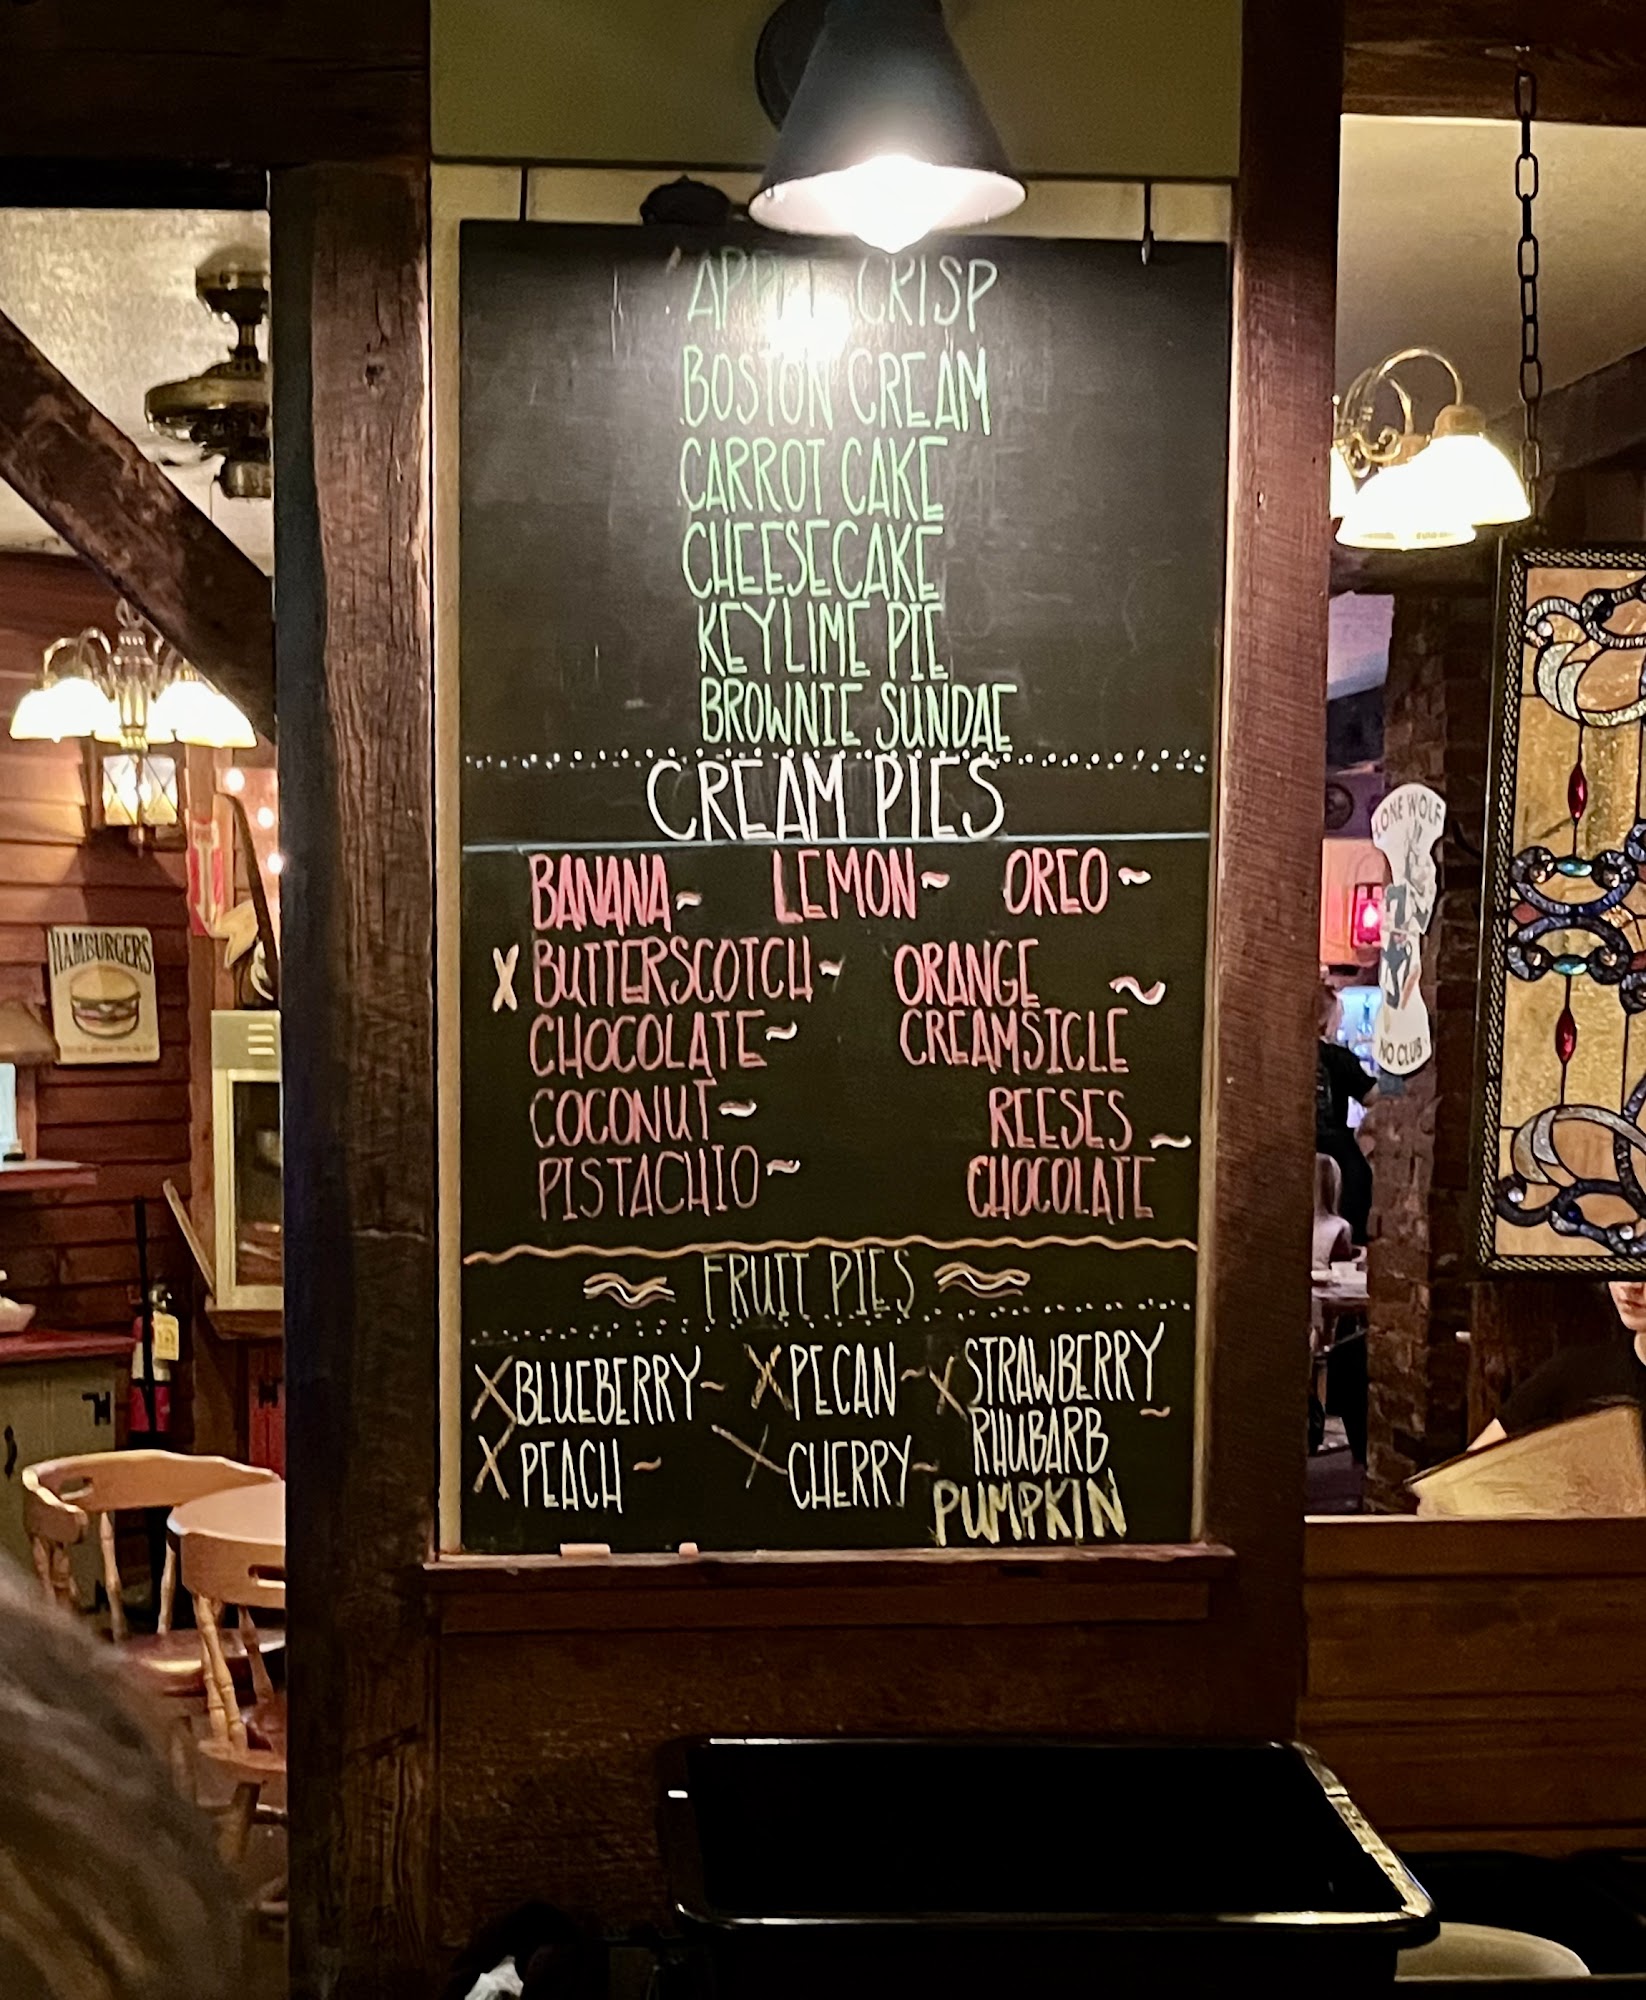 APPLE CRISP
BOSTON CREAM
CARROT CAKE
CHEESECAKE
KEYLIME PIE
BROWNIE SUNDAE
CREAM PIES
BANANA~ LEMON~ OREO~
X BUTTERSCOTCH~ ORANGE ~
CHOCOLATE~ CREAMSICLE
COCONUT~ REESES ~
PISTACHIO~ CHOCOLATE
FRUIT PIES
X BLUEBERRY~ X PECAN~ X STRAWBERRY ~
RHUBARB
X PEACH ~ X CHERRY~
PUMPKIN
HAMBURGERS
LONE WOLF
NO CLUB